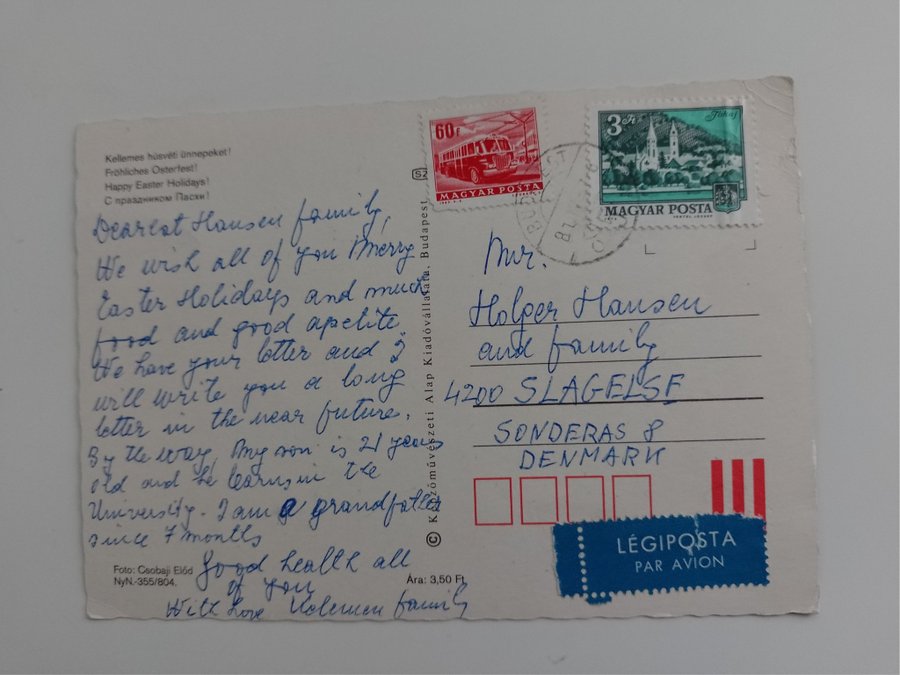 Kellemes húsvéti ünnepeket!
Fröhliches Osterfest!
Happy Easter Holidays!
С праздником Пасхи!
Dearest Hansen family,
We wish all of you Merry
Easter Holidays and much
food and good apetite.
We have your letter and I
will write you a long
letter in the near future.
By the way, My son is 21 years
old and he learns in the
University. I am a grandfather
since 7 months
Good health all
of you
With Love Kelemen family
Foto: Csobaji Előd
NyN.-355/804.
Ára: 3,50 Ft
© Képzőművészeti Alap Kiadóvállalata, Budapest
60f
MAGYAR POSTA
3 Ft
Tokaj
MAGYAR POSTA
BUDAPEST
Mr.
Holger Hansen
and family
4200 SLAGELSE
SONDERAS 8
DENMARK
LÉGIPOSTA
PAR AVION